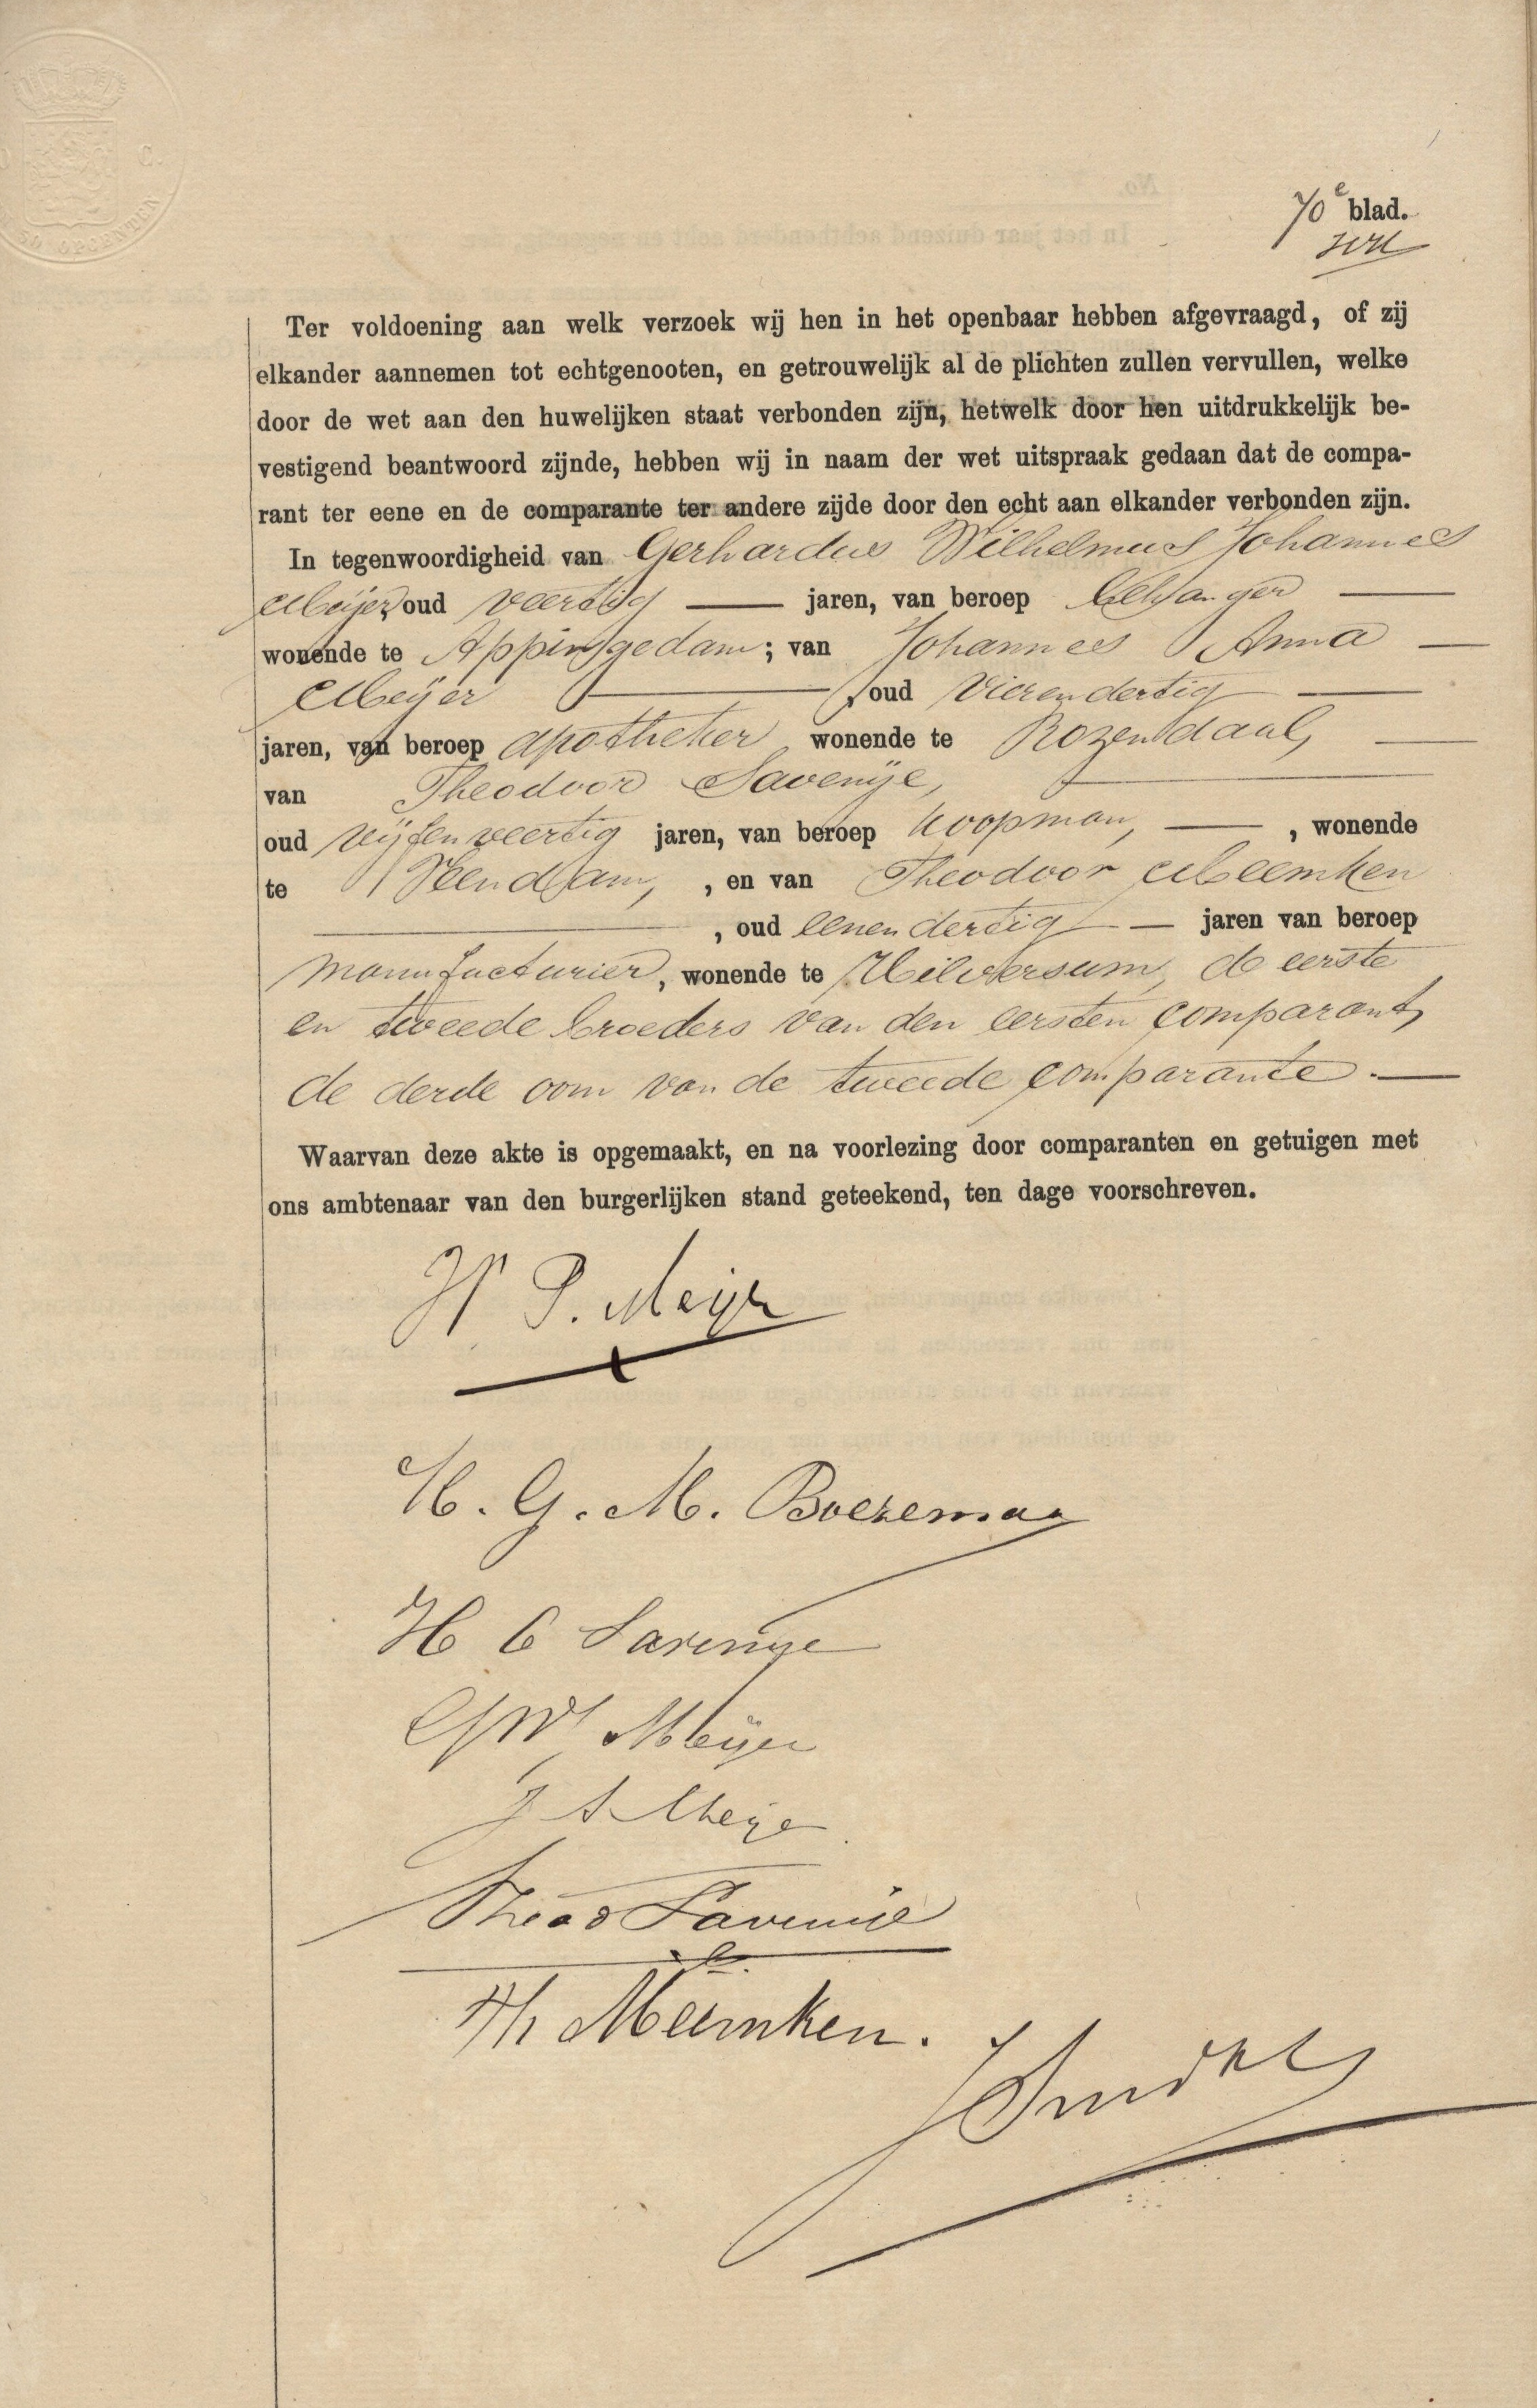 70e blad.
Ter voldoening aan welk verzoek wij hen in het openbaar hebben afgevraagd, of zij
elkander aannemen tot echtgenooten, en getrouwelijk al de plichten zullen vervullen, welke
door de wet aan den huwelijken staat verbonden zijn, hetwelk door hen uitdrukkelijk be-
vestigend beantwoord zijnde, hebben wij in naam der wet uitspraak gedaan dat de compa-
rant ter eene en de comparante ter andere zijde door den echt aan elkander verbonden zijn.
In tegenwoordigheid van Gerhardus Wilhelmus Johannes
Meijer, oud veertig — jaren, van beroep Behanger —
wonende te Appingedam; van Johannes Anna —
Meijer —, oud vierendertig —
jaren, van beroep apotheker wonende te Rozendaal, —
van Theodoor Savenije, —
oud vijfenveertig jaren, van beroep koopman, —, wonende
te Veendam, , en van Theodoor Meemken
—, oud eenendertig — jaren van beroep
manufacturier, wonende te Hilversum, de eerste
en tweede broeders van den eersten comparant,
de derde oom van de tweede comparante. —
Waarvan deze akte is opgemaakt, en na voorlezing door comparanten en getuigen met
ons ambtenaar van den burgerlijken stand geteekend, ten dage voorschreven.
W P. Meijer
H. G. M. Boezeman
H C Savenije
GJW Meijer
J A Meijer
Theod Savenije
Th Meemken.